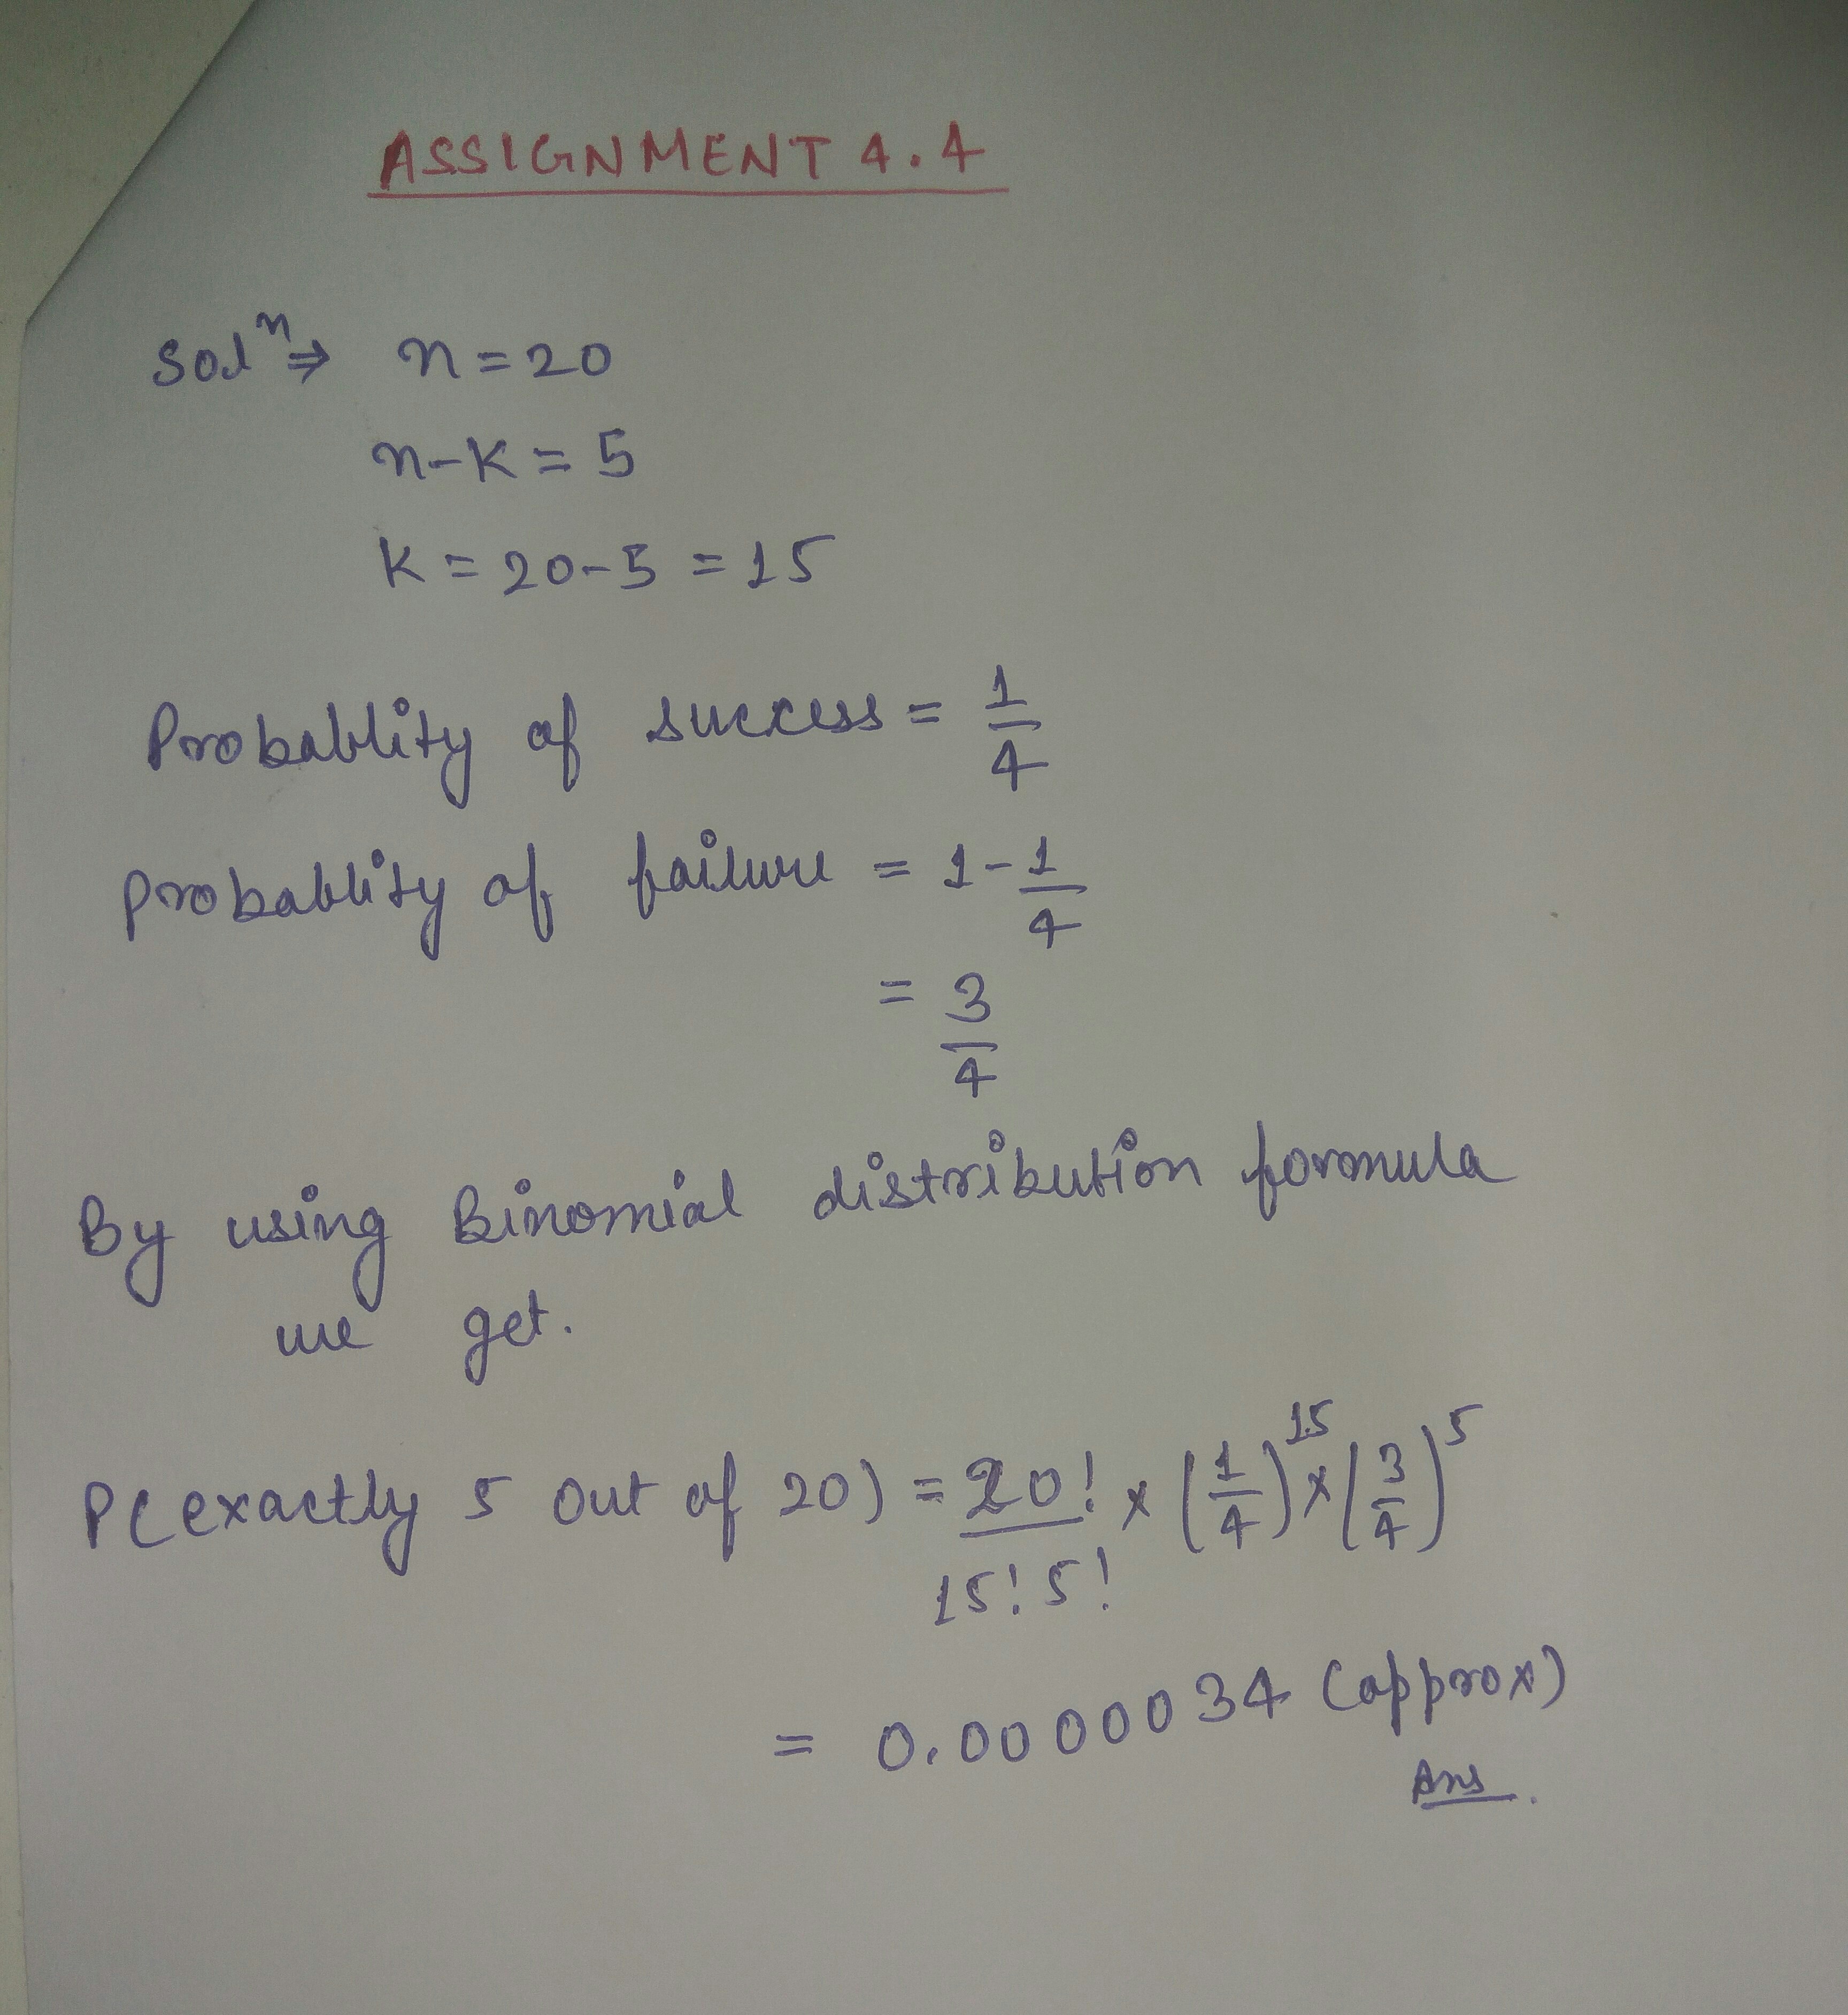 ASSIGNMENT 4.4
Solⁿ ⇒ n = 20
n - K = 5
K = 20 - 5 = 15
Probablity of success = 1/4
Probablity of failure = 1 - 1/4
= 3/4
By using Binomial distribution formula
we get.
P(exactly 5 out of 20) = 20!/15! 5! × (1/4)^15 × (3/4)^5
= 0.0000034 (approx)
Ans.